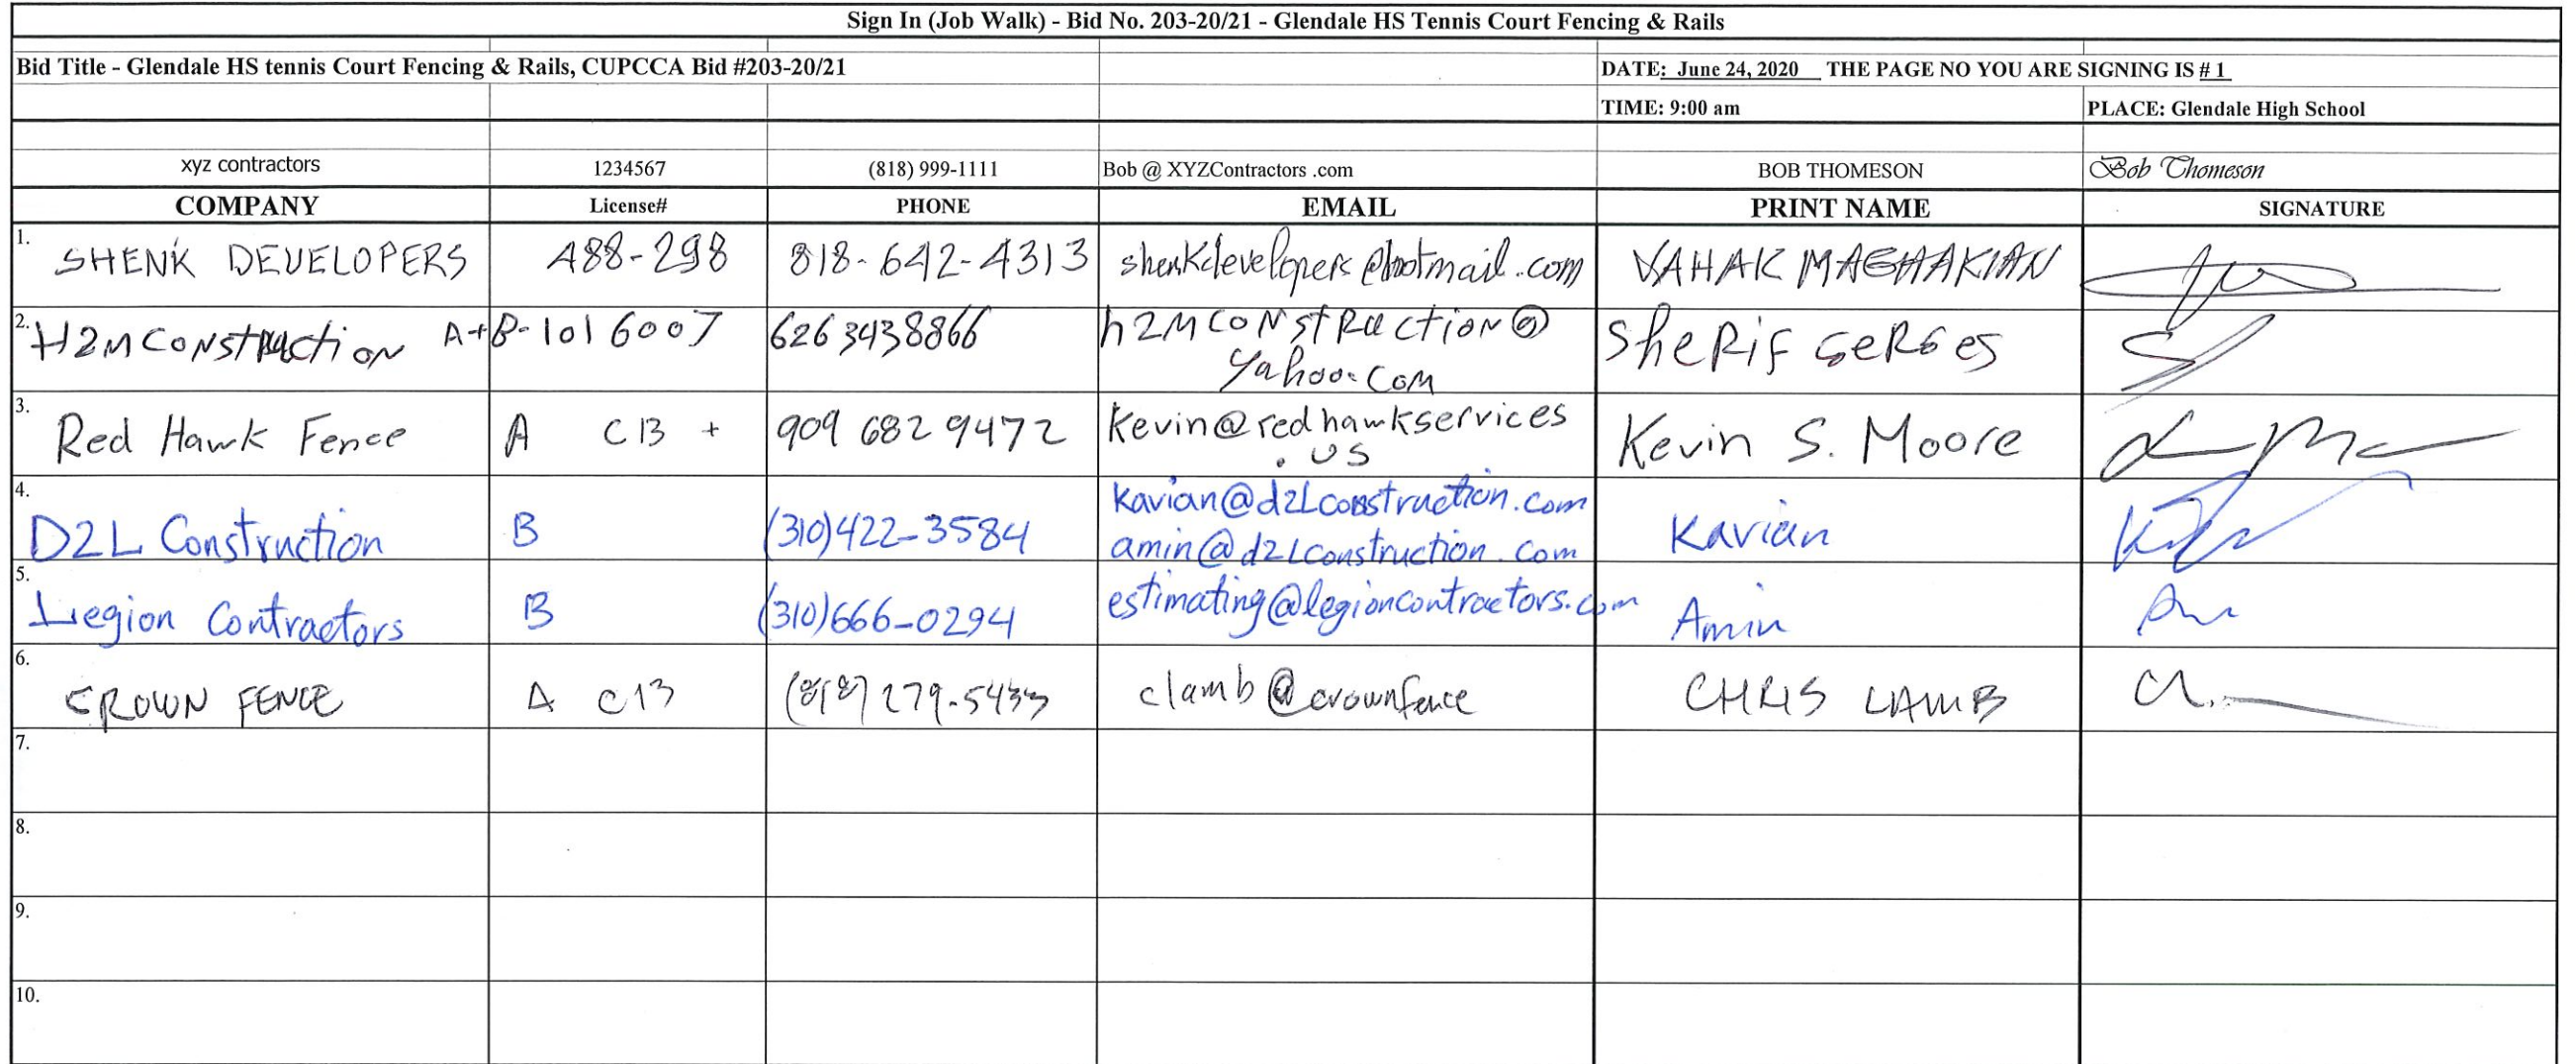 Sign In (Job Walk) - Bid No. 203-20/21 - Glendale HS Tennis Court Fencing & Rails
Bid Title - Glendale HS tennis Court Fencing & Rails, CUPCCA Bid #203-20/21 DATE: June 24, 2020 THE PAGE NO YOU ARE SIGNING IS # 1
TIME: 9:00 am PLACE: Glendale High School
xyz contractors 1234567 (818) 999-1111 Bob @ XYZContractors .com BOB THOMESON Bob Thomeson
COMPANY License# PHONE EMAIL PRINT NAME SIGNATURE
1. SHENK DEVELOPERS 488-298 818-642-4313 shenkdevelopers@hotmail.com VAHAK MAGHAKIAN
2. H2M CONStRuction A+B-1016007 6263438866 h2MCONStRuction@
yahoo.com SheRif GeRGes
3. Red Hawk Fence A C13 + 909 682 9472 Kevin@redhawkservices
.us Kevin S. Moore
4. D2L Construction B (310)422-3584 kavian@d2Lconstruction.com
amin@d2Lconstruction.com Kavian
5. Legion Contractors B (310)666-0294 estimating@legioncontractors.com Amin
6. CROWN FENCE A C13 (818) 279-5433 clamb@crownfence CHRIS LAMB
7.
8.
9.
10.